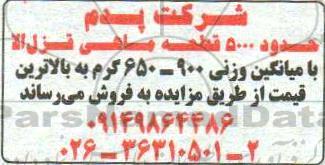 شرکت پدم
حدود ۵۰۰۰ قطعه ماهی قزل‌آلا
با میانگین وزنی ۹۰۰ – ۶۵۰ گرم به بالاترین
قیمت از طریق مزایده به فروش می‌رساند
۰۹۱۴۹۸۶۴۴۸۶
۰۲۶-۳۶۳۱۰۵۰۱-۲